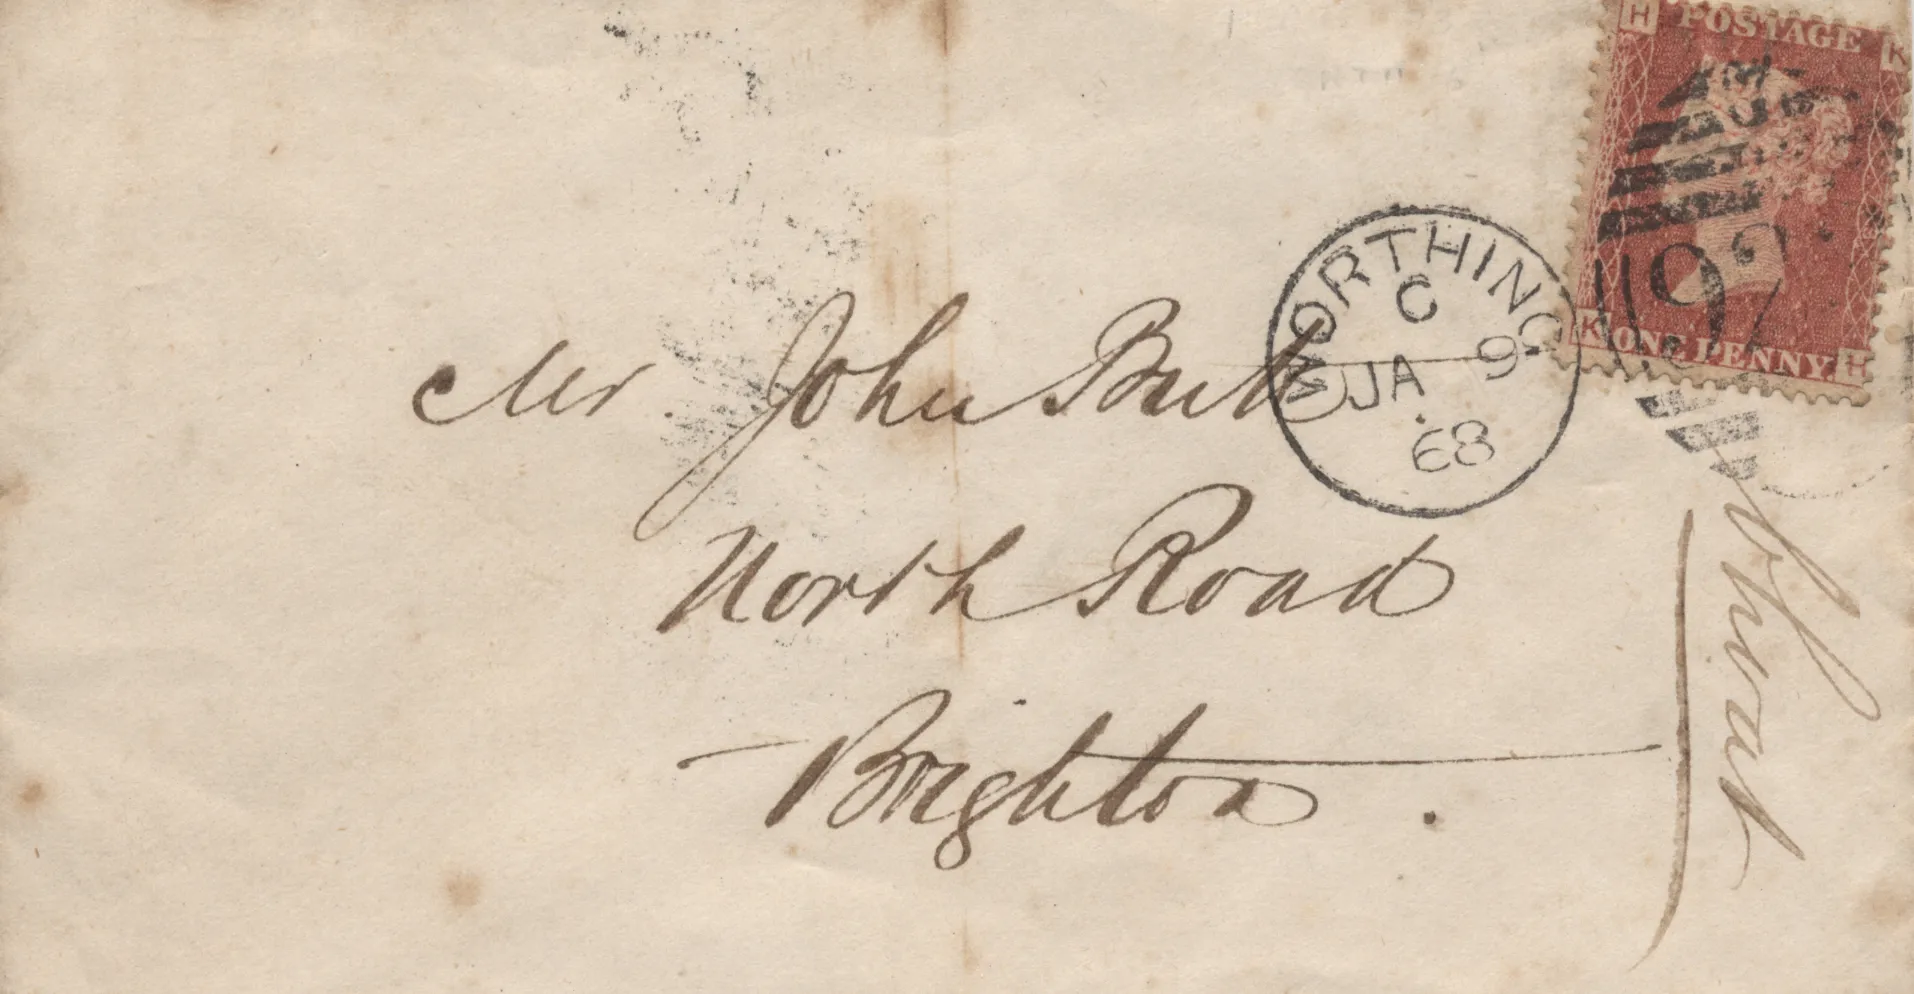 H POSTAGE K
92
K ONE PENNY. H
WORTHING
C
JA 9
68
Mr John
North Road
Brighton.